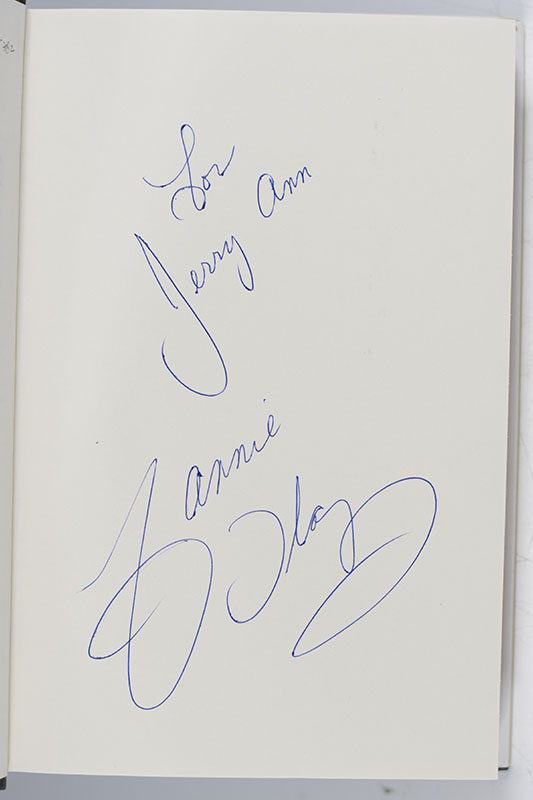 For
Jerry Ann
Fannie
Flagg